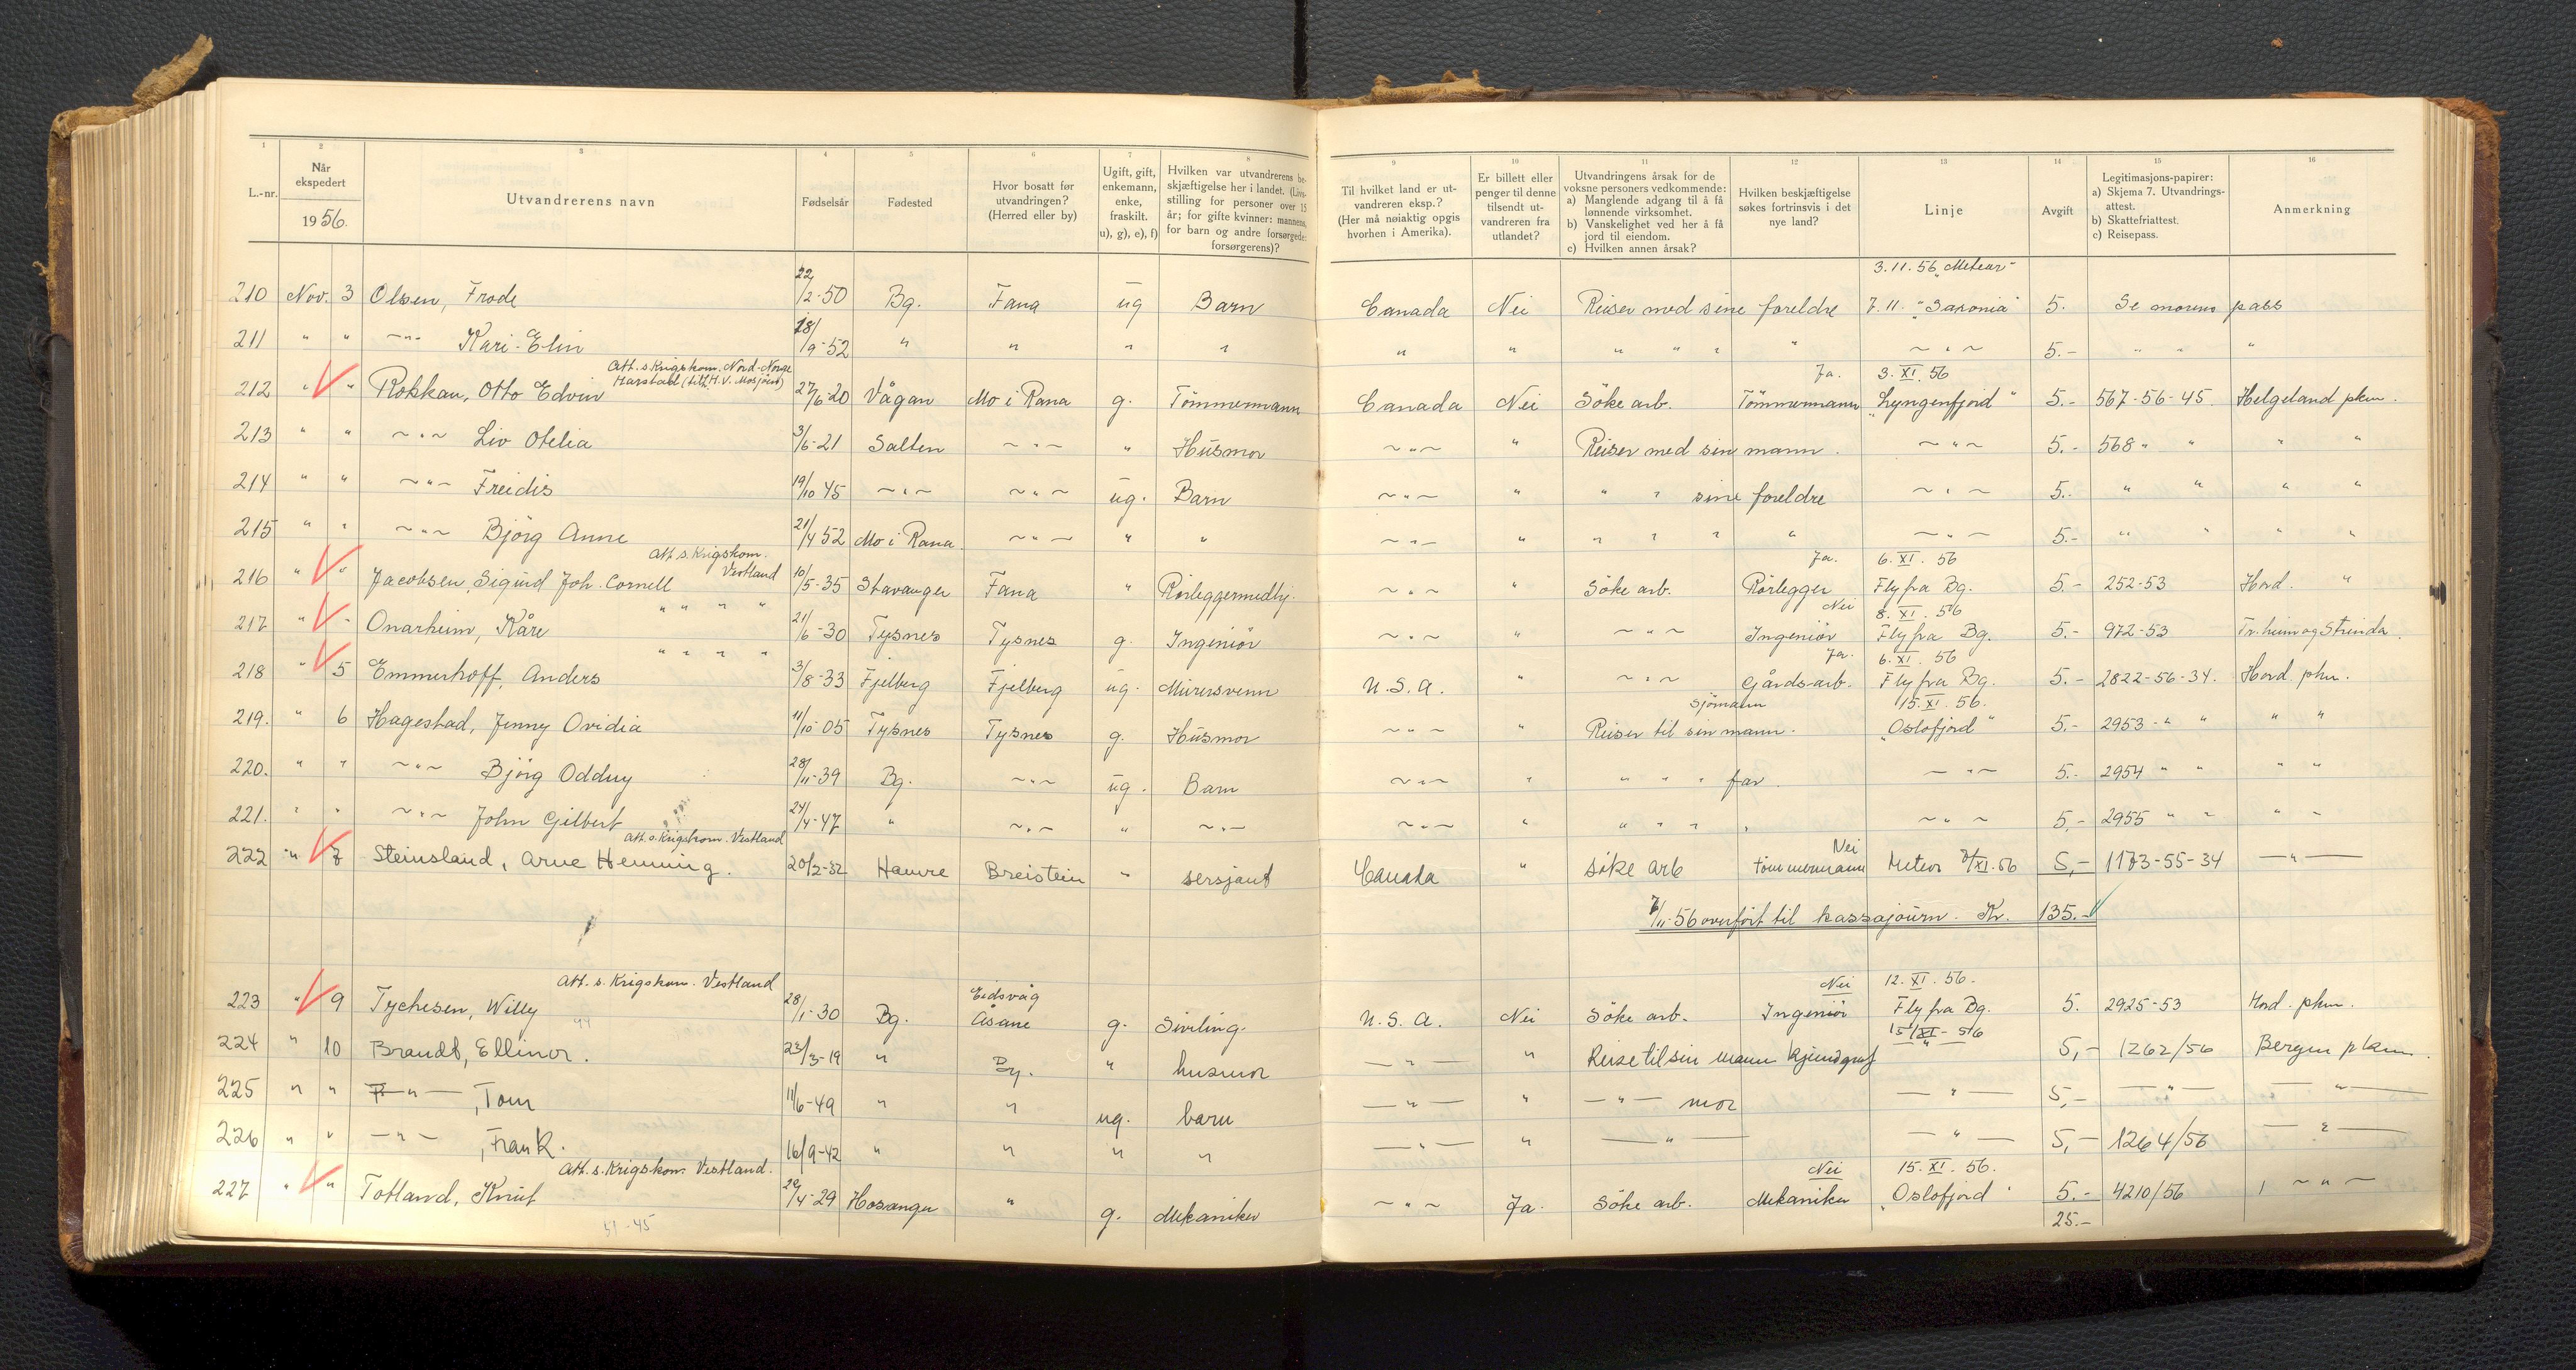 1 2 3 4 5 6 7 8 9 10 11 12 13 14 15 16
L.-nr. | Når ekspedert 1956. | Utvandrerens navn | Fødselsår | Fødested | Hvor bosatt før utvandringen? (Herred eller by) | Ugift, gift, enkemann, enke, fraskilt. u), g), e), f) | Hvilken var utvandrerens beskjæftigelse her i landet. (Livsstilling for personer over 15 år; for gifte kvinner: mannens, for barn og andre forsørgede: forsørgerens)? | Til hvilket land er utvandreren eksp.? (Her må nøiaktig opgis hvorhen i Amerika). | Er billett eller penger til denne tilsendt utvandreren fra utlandet? | Utvandringens årsak for de voksne personers vedkommende: a) Manglende adgang til å få lønnende virksomhet. b) Vanskelighet ved her å få jord til eiendom. c) Hvilken annen årsak? | Hvilken beskjæftigelse søkes fortrinsvis i det nye land? | Linje | Avgift | Legitimasjons-papirer: a) Skjema 7. Utvandringsattest. b) Skattefriattest. c) Reisepass. | Anmerkning
3.11.56 "Meteor"
210 Nov. 3 Olsen, Frode 22/2-50 Bg. Fana ug Barn Canada Nei Reiser med sine foreldre 7.11. "Saxonia" 5. Se morens pass
211 " " -"- Kari-Elin 18/9-52 " " " " " " " " " " -"- 5.- " " "
Att. s. Krigskom. Nord-Norge
Harstad (tilh. H.V. Mosjøen) Ja. 3.XI.56
212 " " Rokkan, Otto Edvin 27/6-20 Vågan Mo i Rana g. Tömmermann Canada Nei Söke arb. Tömmermann "Lyngenfjord" 5.- 567-56-45. Helgeland pkm.
213 " " -"- Liv Otelia 3/6-21 Salten -"- " Husmor -"- " Reiser med sin mann. -"- 5.- 568 " " " "
214 " " -"- Freidis 19/10 45 -"- -"- ug. Barn -"- " " " sine foreldre -"- 5.- " " " "
215 " " -"- Björg Anne 21/4 52 Mo i Rana -"- " " -"- " " " " " -"- 5.- " " " "
Att s. Krigskom. Vestland Ja. 6.XI.56
216 " " Jacobsen, Sigurd Joh. Cornell 10/5-35 Stavanger Fana " Rörleggermedhj. -"- " Söke arb. Rörlegger Fly fra Bg. 5.- 252-53 Hord. "
" " " " Nei 8.XI.56
217 " " Onarheim, Kåre 21/6-30 Tysnes Tysnes g. Ingeniör -"- " -"- Ingeniör Fly fra Bg. 5.- 972-53 Tr.heim og Strinda.
" " " " Ja. 6.XI.56
218 " 5 Emmerhoff, Anders 3/8-33 Fjelberg Fjelberg ug. Murersvenn U.S.A. " -"- Gårdsarb. Fly fra Bg. 5.- 2822-56-34. Hord. pkm.
Sjömann 15.XI.56.
219. " 6 Hagestad, Jenny Ovidia 11/10-05 Tysnes Tysnes g. Husmor -"- " Reiser til sin mann. "Oslofjord" 5.- 2953 - " " " "
220. " " -"- Björg Oddny 28/11-39 Bg. -"- ug. Barn -"- " " " " far. -"- 5.- 2954 " " " "
221. " " -"- John Gilbert 24/4-47 " -"- " -"- -"- " " " " " -"- 5,- 2955 " " " "
Att. s. Krigskom. Vestland Nei
222 " 7 Steinsland, Arne Henning. 20/2-32 Hamre Breistein " sersjant Canada " söke arb tömmermann Meteor 7/XI.56 5,- 1173-55-34 -"-
7/11-56 overfört til kassajourn. Kr. 135.-
Att. s. Krigskom. Vestland Nei 12.XI.56.
223 " 9 Tychesen, Willy 28/1-30 Bg. Eidsvåg Åsane g. Siviling. U.S.A. Nei Söke arb. Ingeniör Fly fra Bg. 5. 2925-53 Hord. pkm.
15/XI-56
224 " 10 Brandt, Ellinor. 23/3-19 " By. " husmor -"- " Reise til sin mann -"- 5,- 1262/56 Bergen pkm.
225 " " -"-, Tom 11/6-49 " " ug. barn -"- " -"- mor -"- 5,- -"- -"-
226 " " -"-, Frank. 16/9-42 " " " " -"- " -"- -"- 5,- 1264/56 -"-
Att. s. Krigskom. Vestland. Nei 15.XI.56.
227 " " Totland, Knut 29/4-29 Hosanger " g. Mekaniker -"- Ja. Söke arb. Mekaniker "Oslofjord" 5.- 4210/56 -"-
51-45 25.-